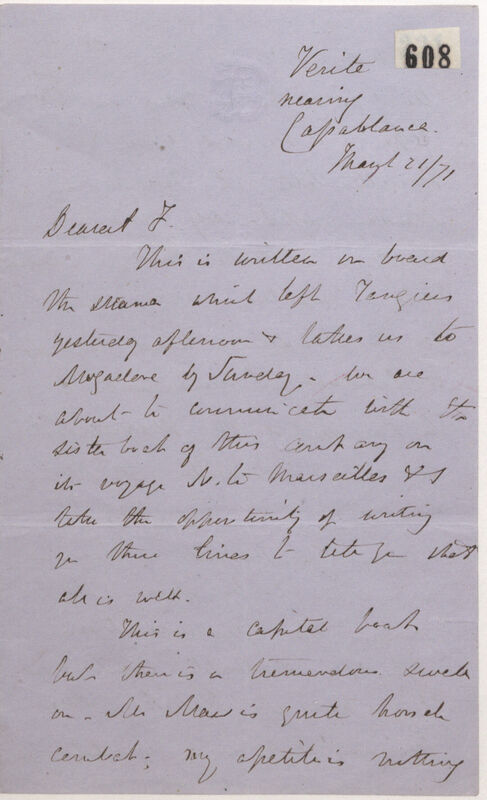 608
Verite
nearing
Casablanca.
May 21/71
Dearest F.
This is written on board
the steamer which left Tangiers
yesterday afternoon & takes us to
Mogadore by Sunday. We are
about to communicate with the
sister boat of this company on
its voyage N. to Marseilles & I
take the opportunity of writing
you these lines to tell you that
all is well.
This is a capital boat
but there is a tremendous swell
on. Mr Maw is quite
my apetite is nothing